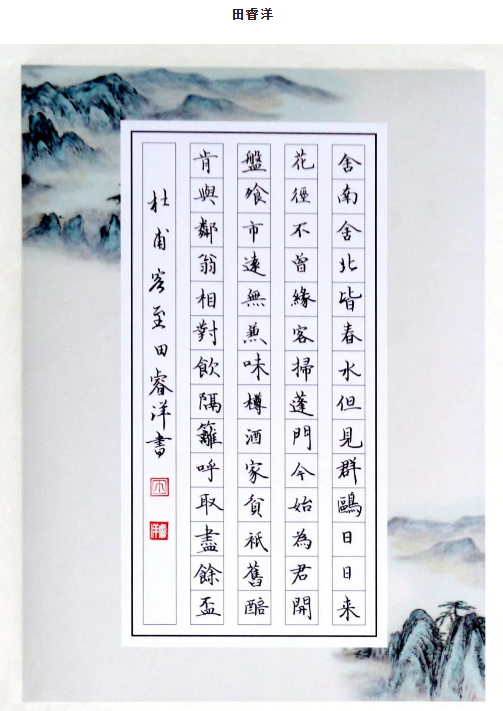 田睿洋
舍南舍北皆春水但見群鷗日日来
花徑不曾緣客掃蓬門今始為君開
盤飧市遠無兼味樽酒家貧祇舊醅
肯與鄰翁相對飲隔籬呼取盡餘盃
杜甫客至田睿洋書